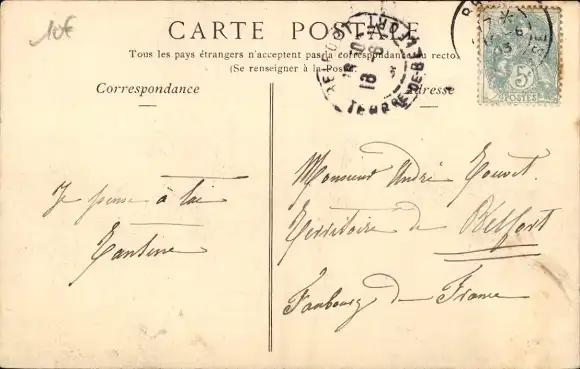 10f
CARTE POSTALE
Tous les pays étrangers n'acceptent pas la correspondance au recto
(Se renseigner à la Poste)
Correspondance
Adresse
Je pense à toi
Tantine
Monsieur André
Territoire de Belfort
Faubourg de France
BELFORT
18
TERRE DE BELFORT
5c
POSTES